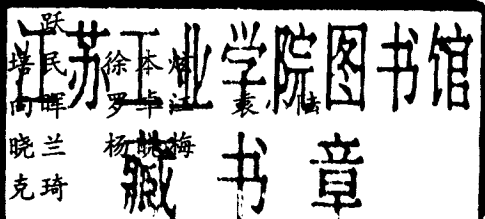 江苏工业学院图书馆
藏书章
跃
民 徐本
晖 罗 江 袁 陆
晓兰 杨晓梅
克琦